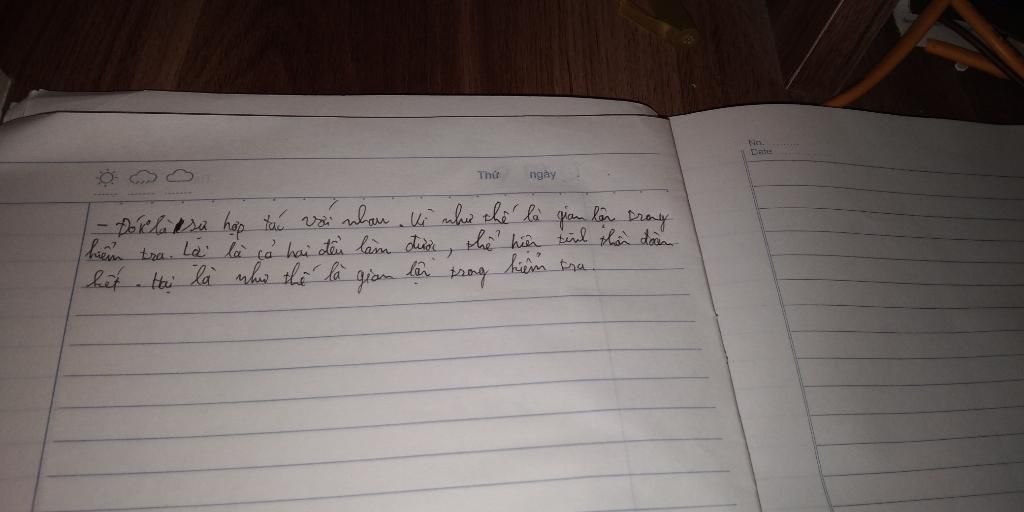 No. ..........
Date ..........
Thứ ngày
- Đó là sự hợp tác với nhau. Vì như thế là gian lận trong
kiểm tra. Lợi là cả hai đều làm được, thể hiện tinh thần đoàn
kết. Hại là như thế là gian lận trong kiểm tra.